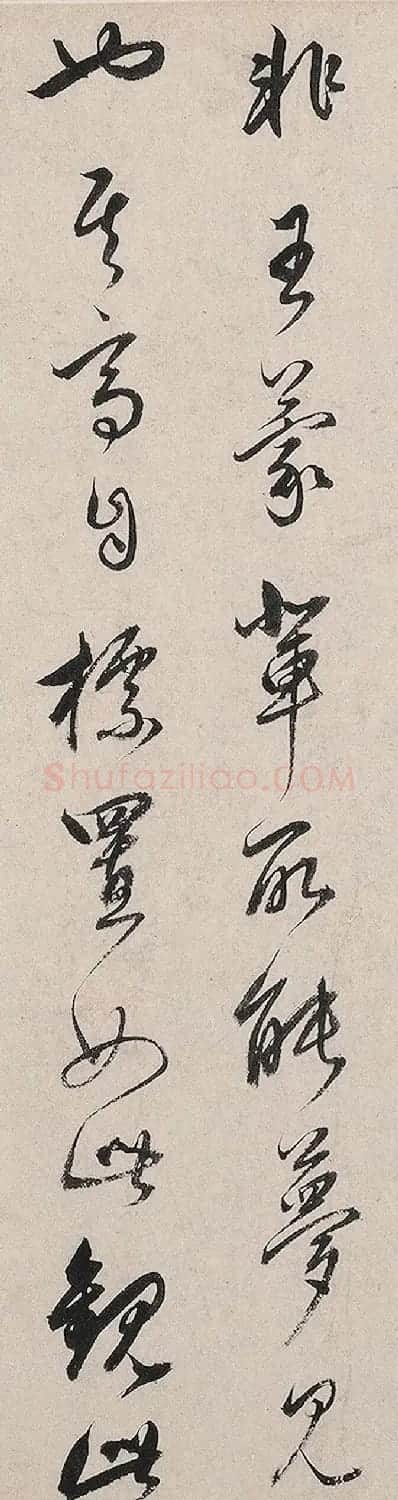 非王蒙輩所能夢見
也其高自標置如此觀此
Shufaziliao.COM